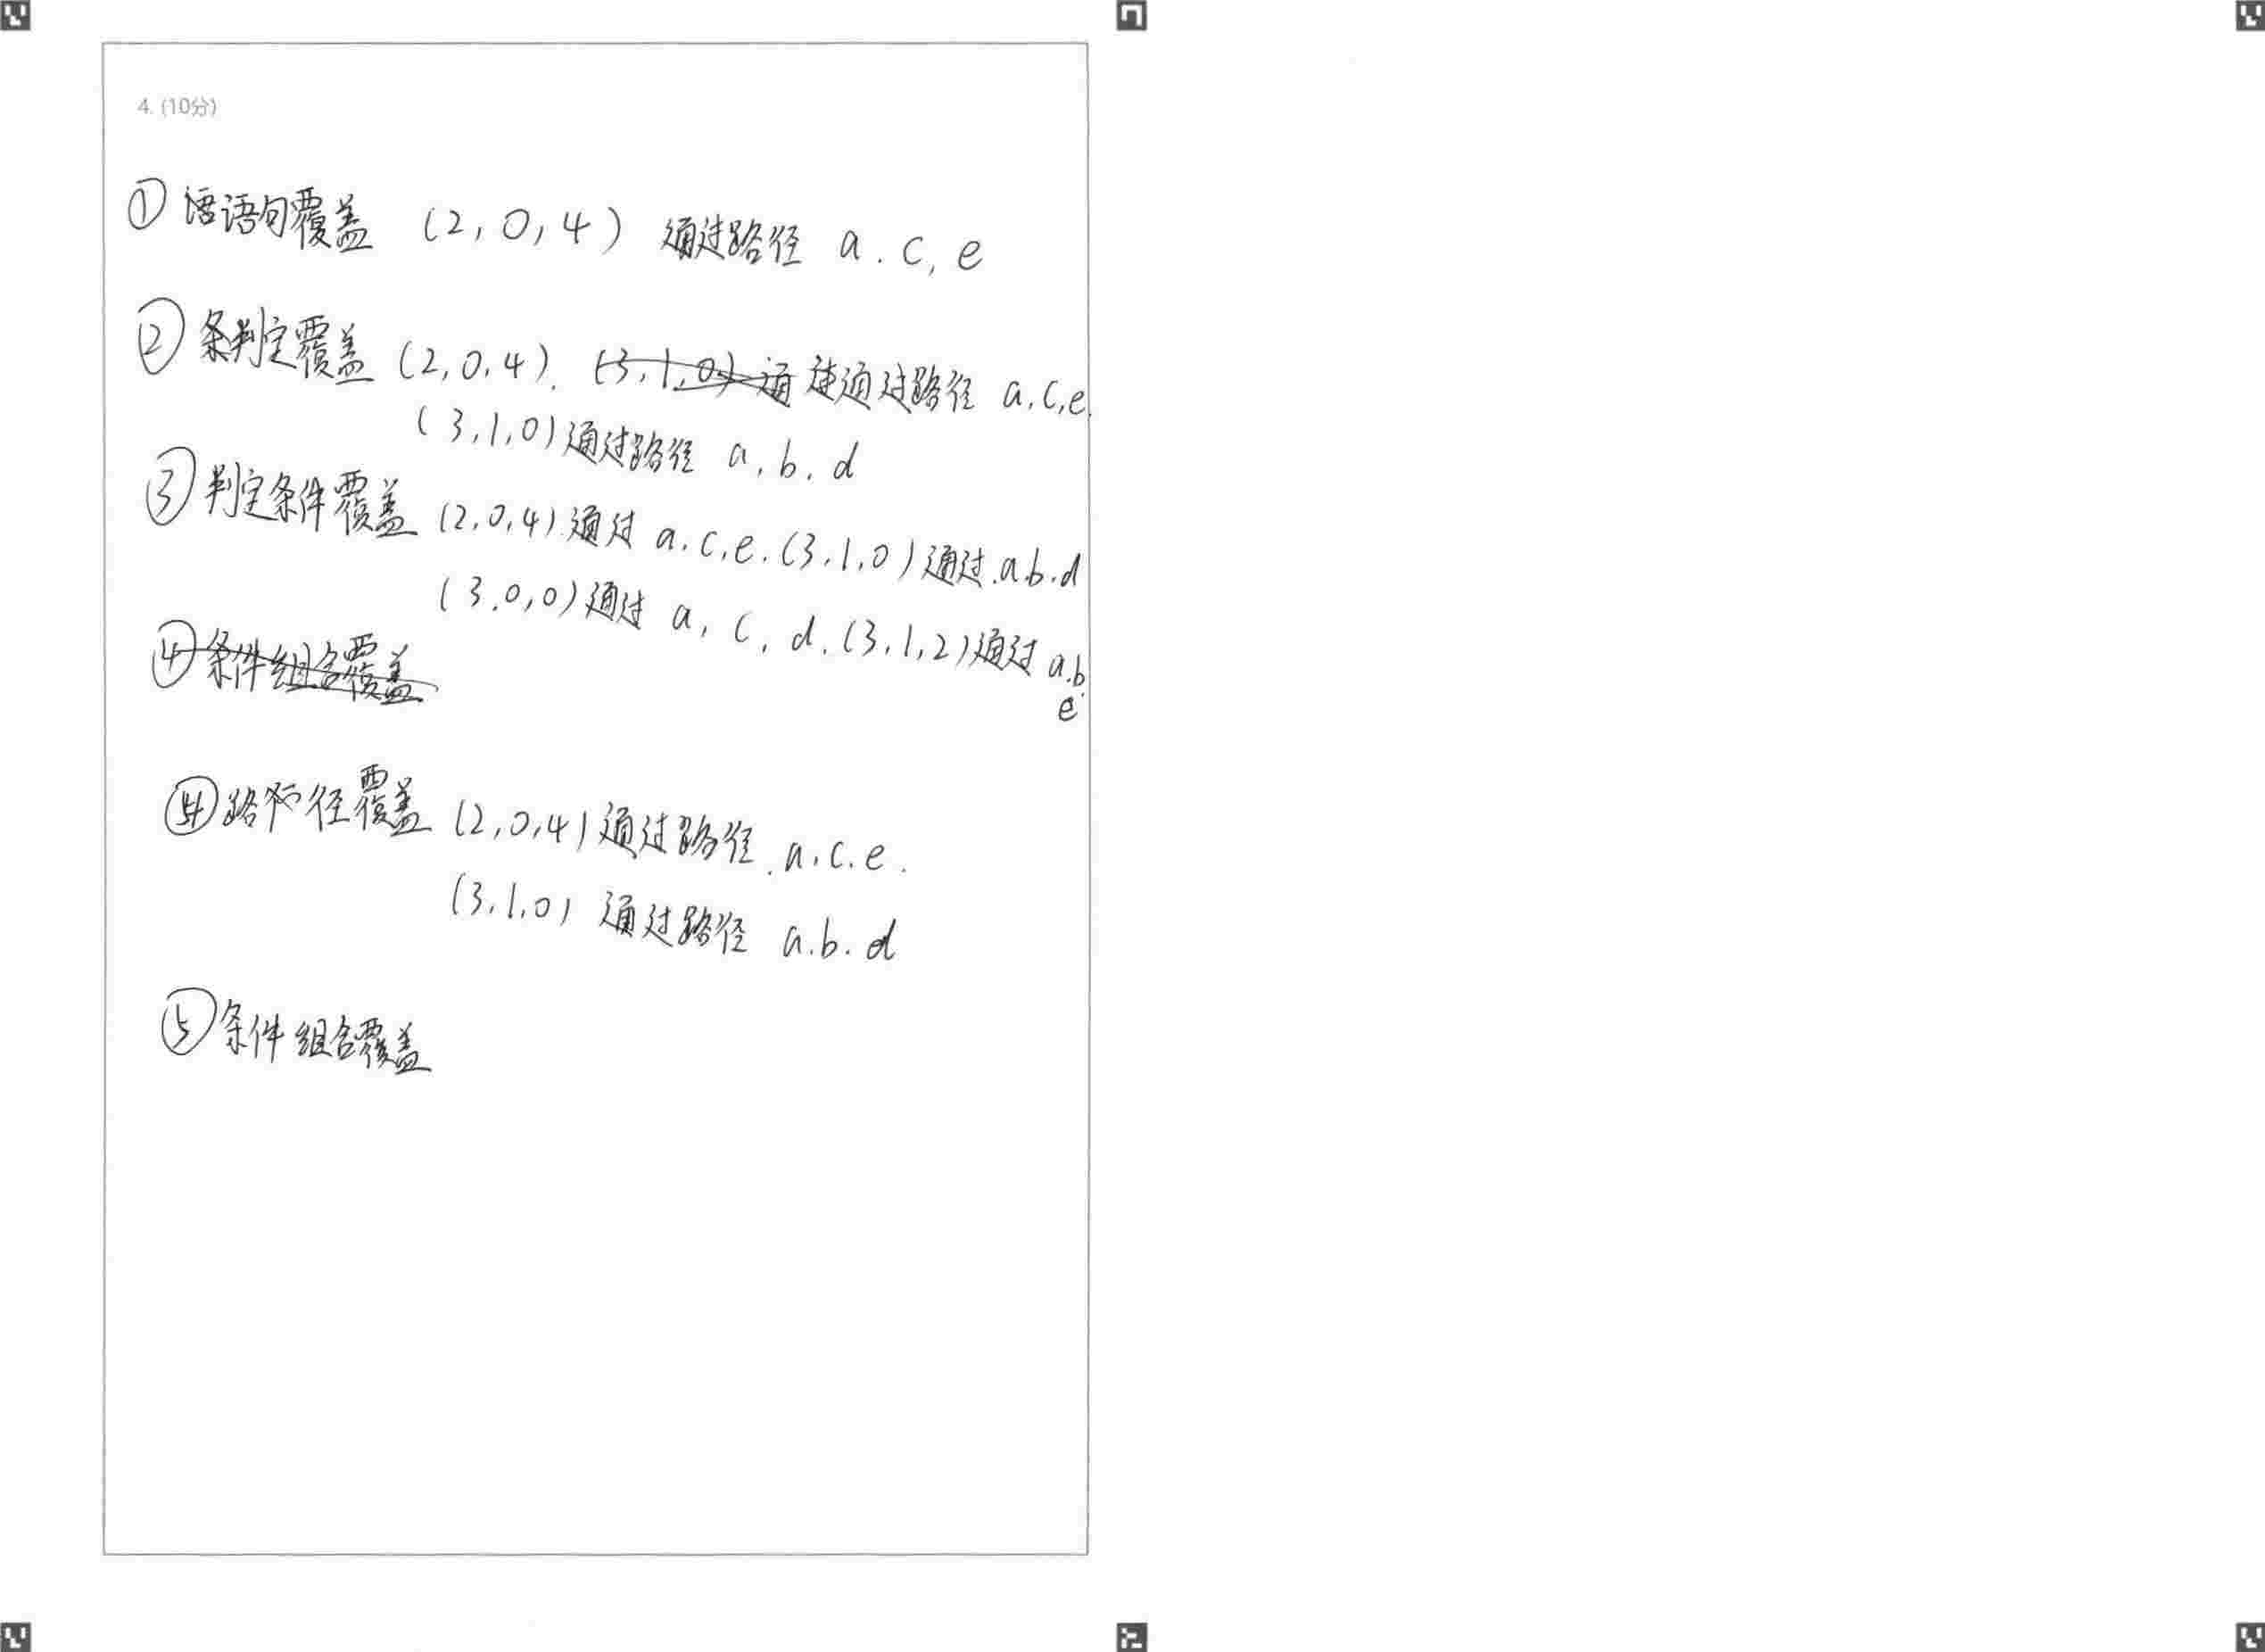 4. (10分)
① 语句覆盖 (2, 0, 4) 通过路径 a. c, e
② 判定覆盖 (2, 0, 4). 通过路径 a, c, e.
(3, 1, 0) 通过路径 a, b, d
③ 判定条件覆盖 (2, 0, 4) 通过 a. c, e. (3, 1, 0) 通过 a.b.d
(3.0,0) 通过 a, c, d. (3, 1, 2) 通过 a.b.
e
④ 条件组合覆盖
④ 路径覆盖 (2, 0, 4) 通过路径. a. c. e.
(3, 1, 0) 通过路径 a. b. d
⑤ 条件组合覆盖